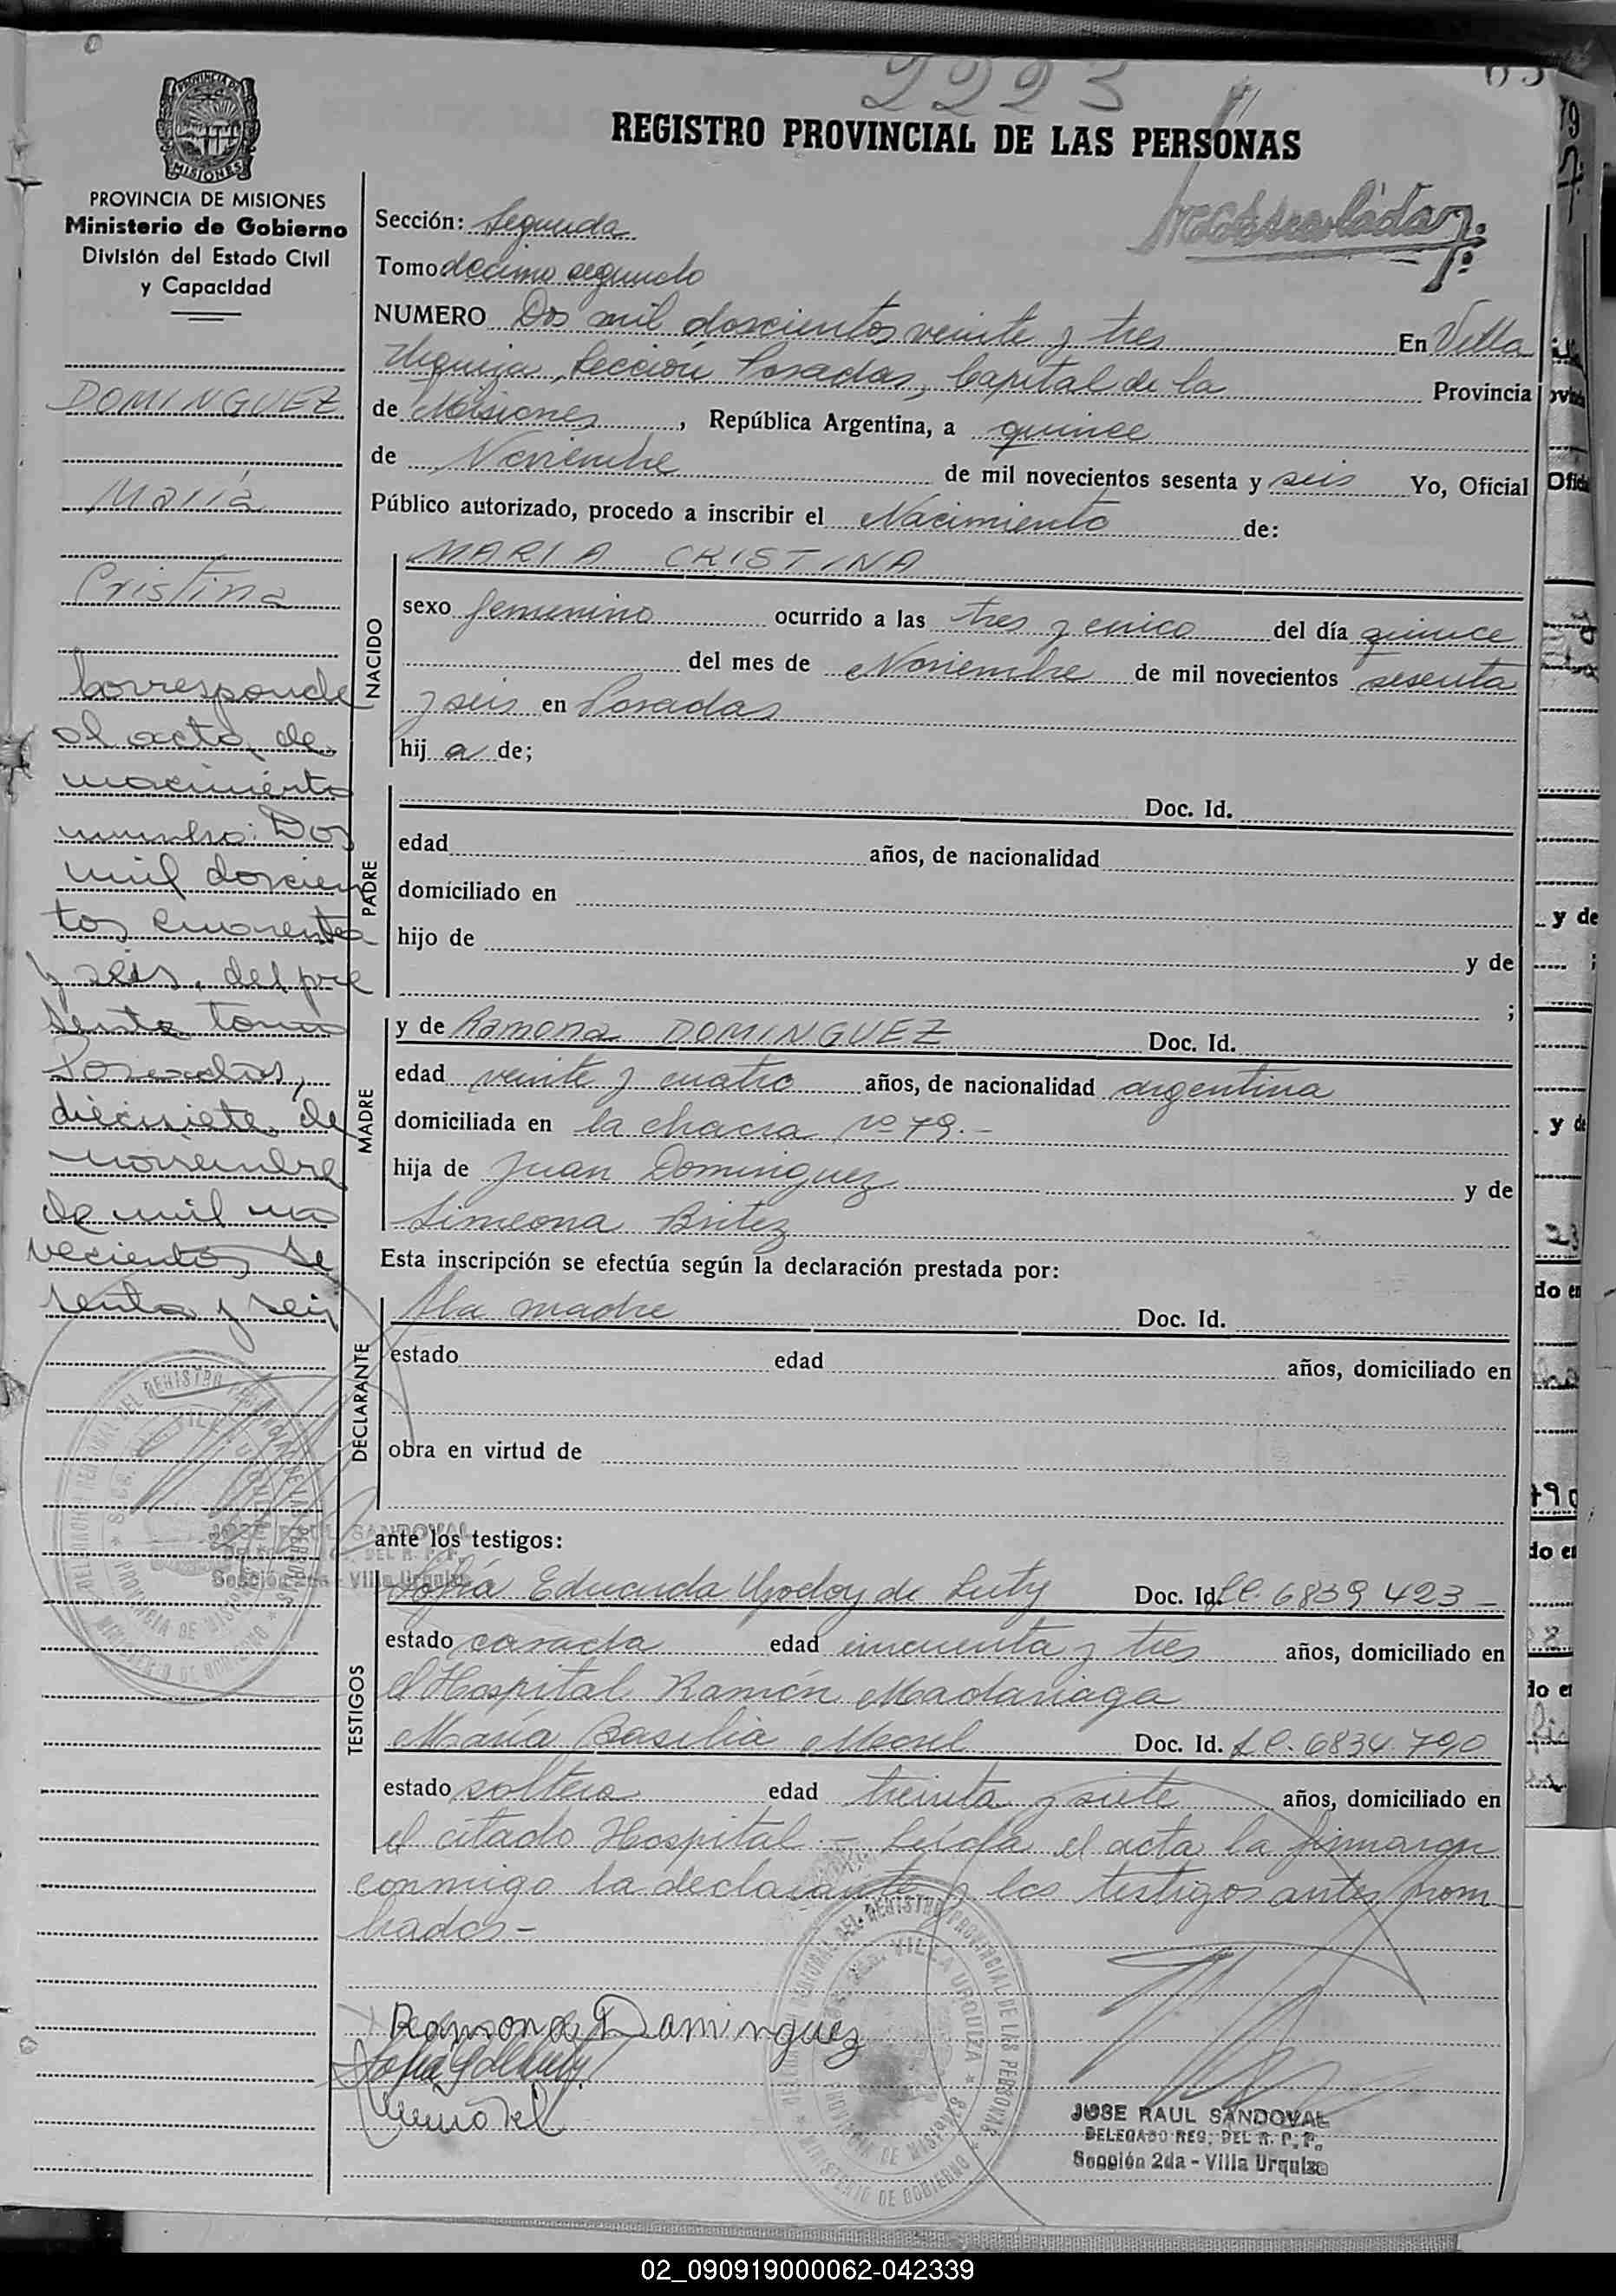 2223
REGISTRO PROVINCIAL DE LAS PERSONAS
PROVINCIA DE MISIONES
Ministerio de Gobierno
División del Estado Civil
y Capacidad
DOMINGUEZ
María
Cristina
Corresponde
al acta de
nacimiento
numero: Dos
mil doscien
tos cuarenta
y seis, del pre
sente tomo
Posadas,
diecisiete de
noviembre
de mil no
vecientos se
senta y seis
Sección: Segunda
Tomo décimo segundo
NUMERO Dos mil doscientos veinte y tres En Villa
Urquiza, Sección Posadas, Capital de la Provincia
de Misiones, República Argentina, a quince
de Noviembre de mil novecientos sesenta y seis Yo, Oficial
Público autorizado, procedo a inscribir el Nacimiento de:
NACIDO
MARIA CRISTINA
sexo femenino ocurrido a las tres y cinco del día quince
del mes de Noviembre de mil novecientos sesenta
y seis en Posadas
hij a de;
PADRE
Doc. Id.
edad años, de nacionalidad
domiciliado en
hijo de y de
;
MADRE
y de Ramona DOMINGUEZ Doc. Id.
edad veinte y cuatro años, de nacionalidad argentina
domiciliada en la chacra nº 79.-
hija de Juan Dominguez y de
Simeona Britez
Esta inscripción se efectúa según la declaración prestada por:
DECLARANTE
la madre Doc. Id.
estado edad años, domiciliado en
obra en virtud de
ante los testigos:
TESTIGOS
Sofía Eduarda Godoy de Luty Doc. Id. L.C. 6839 423 -
estado casada edad cincuenta y tres años, domiciliado en
el Hospital Ramón Madariaga
María Basilia Doc. Id. L.C. 6834.790
estado soltera edad treinta y siete años, domiciliado en
el citado Hospital.- Leída el acta la firmaron
conmigo la declarante y los testigos antes nom
brados-
Ramona Daminguez
JOSE RAUL SANDOVAL
DELEGADO REG. DEL R. P. P.
Sección 2da - Villa Urquiza
02_090919000062-042339